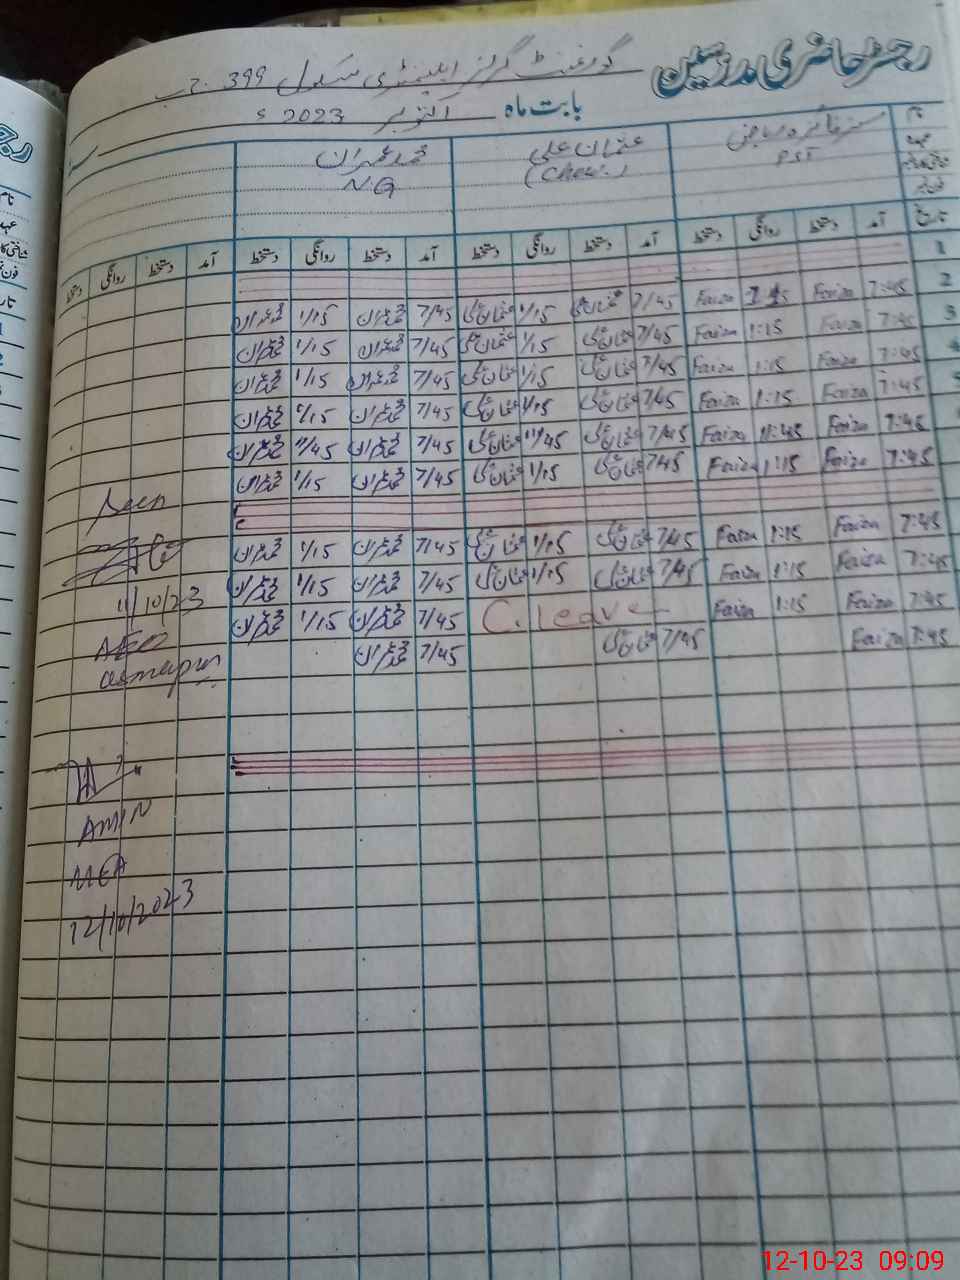 رجسٹر حاضری مدرسین
گورنمنٹ گرلز ایلیمنٹری سکول 399 ج۔ب
بابت ماہ اکتوبر 2023ء
نام
عہدہ
PST
عثمان علی
(Chow:)
محمد عمران
NQ
تاریخ آمد دستخط روانگی دستخط آمد دستخط روانگی دستخط آمد دستخط روانگی دستخط آمد دستخط روانگی دستخط
1
2 7:45 Faiza Faiza 7/45 عثمان علی 1/15 عثمان علی 7/45 محمد عمران 1/15 محمد عمران
3 7:45 Faiza 1:15 Faiza 7/45 عثمان علی 1/15 عثمان علی 7/45 محمد عمران 1/15 محمد عمران
7:45 Faiza 1:15 Faiza 7/45 عثمان علی 1/15 عثمان علی 7/45 محمد عمران 1/15 محمد عمران
5 7:45 Faiza 1:15 Faiza 7/45 عثمان علی 1/15 عثمان علی 7/45 محمد عمران 1/15 محمد عمران
7:45 Faiza 11:45 Faiza 7/45 عثمان علی 11/45 عثمان علی 7/45 محمد عمران 11/45 محمد عمران
7:45 Faiza 1:15 Faiza 7/45 عثمان علی 1/15 عثمان علی 7/45 محمد عمران 1/15 محمد عمران
7:45 Faiza 1:15 Faiza 7/45 عثمان علی 1/15 عثمان علی 7/45 محمد عمران 1/15 محمد عمران
7:45 Faiza 1:15 Faiza 7/45 عثمان علی 1/15 عثمان علی 7/45 محمد عمران 1/15 محمد عمران
7:45 Faiza 1:15 Faiza C. leave 7/45 محمد عمران 1/15 محمد عمران
7:45 Faiza 7/45 عثمان علی 7/45 محمد عمران
Seen
11/10/23
AEO
AMIN
MEA
12/10/2023
12-10-23 09:09